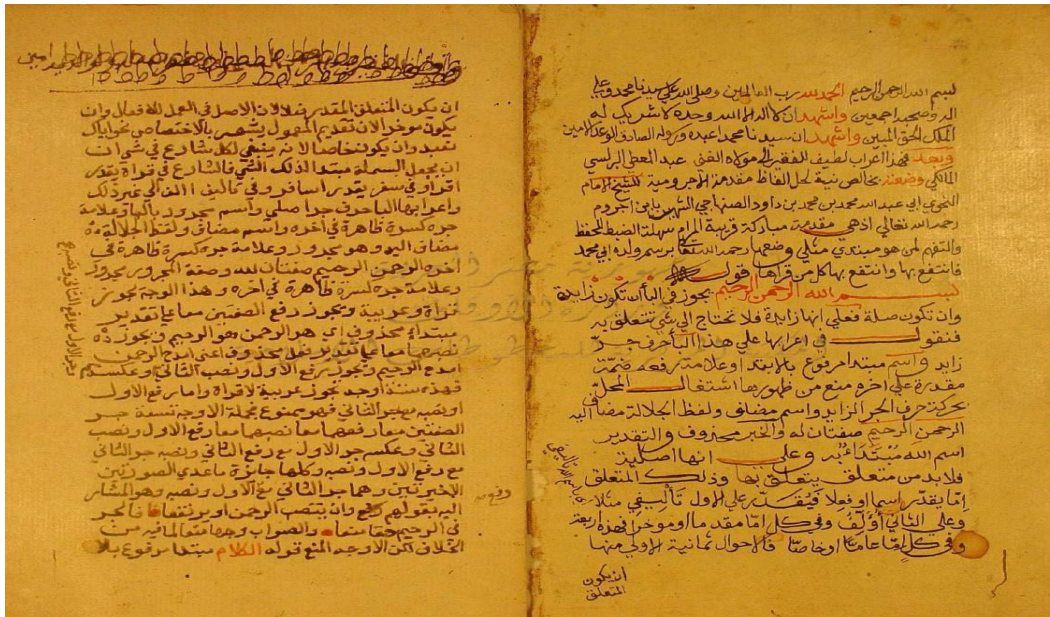 بسم الله الرحمن الرحيم الحمد لله رب العالمين وصلى الله على سيدنا محمد وعلى
اله وصحبه اجمعين واشهد ان لا اله الا الله وحده لا شريك له
الملك الحق المبين واشهد ان سيدنا محمدا عبده ورسوله الصادق الوعد الامين
وبعد فهذا اعراب لطيف للفقير الى مولاه الغنى عبد المعطي
المالكي وضعته بخالص نية لحل الفاظ مقدمة الاجرومية للشيخ الامام
النحوي ابي عبد الله محمد بن محمد بن داود الصنهاجي الشهير بابن اجروم
رحمه الله تعالى اذ هي مقدمة مباركة قريبة المرام سهلة الضبط للحفظ
والتفهم لمن هو مبتدي مثلي وضعها رحمه الله تعالى برسم ولده ابي محمد
فانتفع بها وانتفع بها كل من قراها قوله
بسم الله الرحمن الرحيم يجوز في الباان تكون زايدة
وان تكون صلة فعلي انها زايدة فلا تحتاج الى شي تتعلق به
فنقول في اعرابها علي هذا البا حرف جر
زايد واسم مبتدا مرفوع بالابتدا وعلامة رفعه ضمة
مقدرة علي اخره منع من ظهورها اشتغال المحل
بحركة حرف الجر الزايد واسم مضاف ولفظ الجلالة مضاف اليه
الرحمن الرحيم صفتان له والخبر محذوف والتقدير
اسم الله مبتدا به وعلي انها اصلية
فلا بد من متعلق يتعلق بها وذلك المتعلق
اما يقدر اسما او فعلا فيقدر علي الاول تاليفي مثلا
وعلي الثاني اولف وفي كل اما مقدما او موخرا فهذه اربعة
وفي كل اما عاما او خاصا فالاحوال ثمانية الاولي منها
ان يكون
المتعلق
ان يكون المتعلق المقدر فعلا لان الاصل في العمل للافعال وان
يكون موخرا لان تقديم المعمول يشعر بالاختصاص نحو اياك
نعبد وان يكون خاصا لانه ينبغي لكل شارع في شي ان
ان يجعل البسملة مبتدا لذلك الشي فالشارع في قراة يقدر
اقرا وفي سفر يقدر اسافر وفي تاليف الف الي غير ذلك
واعرابها البا حرف جر اصلي واسم مجرور بالبا وعلامة
جره كسرة ظاهرة في اخره واسم مضاف ولفظ الجلالة
مضاف اليه وهو مجرور وعلامة جره كسرة ظاهرة في
اخره الرحمن الرحيم صفتان لله وصفة المجرور مجرور
وعلامة جره كسرة ظاهرة في اخره وهذا الوجه يجوز
قراة وعربية ويجوز رفع الصفتين معا علي تقدير
مبتدا محذوف اي هو الرحمن هو الرحيم ويجوز
نصبهما معا علي تقدير فعل محذوف اعني امدح الرحمن
امدح الرحيم ويجوز رفع الاول ونصب الثاني وعكسه
فهذه ستة اوجه تجوز عربية لا قراة واما رفع الاول
او نصبه مع جر الثاني فهو ممنوع فجملة الاوجه تسعة جر
الصفتين معا رفعهما معا نصبهما معا رفع الاول ونصب
الثاني وعكسه جر الاول مع رفع الثاني ونصبه جر الثاني
مع رفع الاول ونصبه وكلها جايزة ما عدي الصورتين
الاخيرتين وهما جر الثاني مع الاول ونصبه وهو المشار
اليه بقولهم وان ينتصب الرحمن او يرتفعا فالجر
في الرحيم قطعا منعا والصواب وجها منعا لما فيه من
الخلاف لكن الاوجه المنع قوله الكلام مبتدا مرفوع بالا